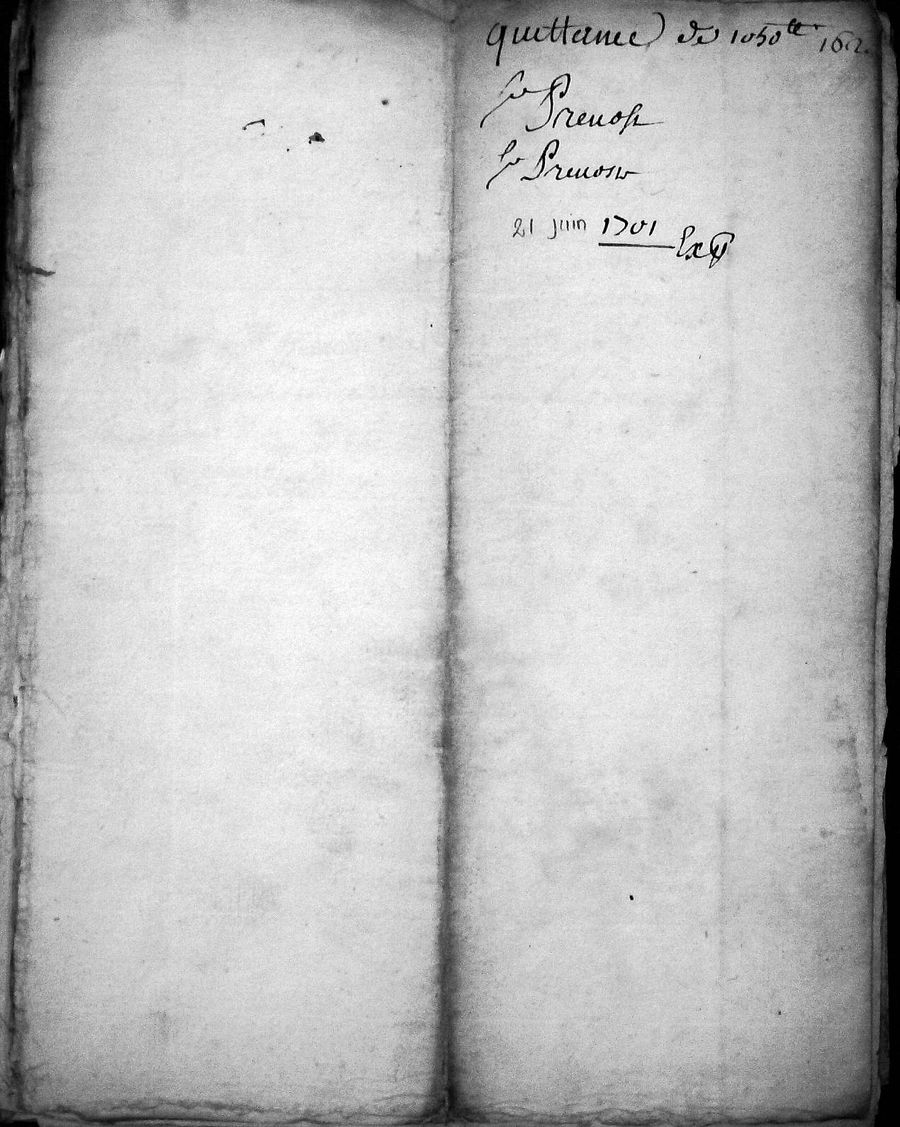 quittance de 1050ᵗᵗ
Sr Prevost
Sr Prevost
21 juin 1701
Exp